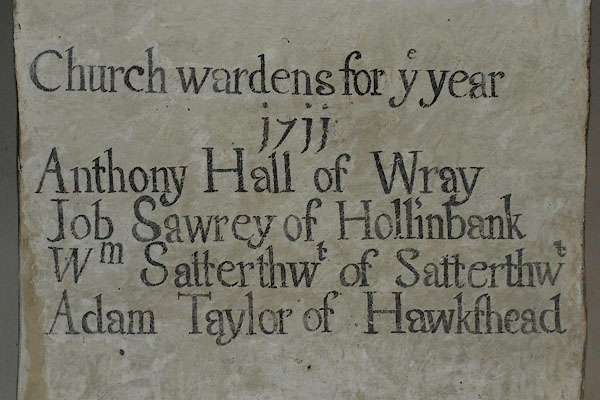 Church wardens for yᵉ year
j7jj
Anthony Hall of Wray
Job Sawrey of Hollinbank
Wᵐ Satterthwᵗ of Satterthwᵗ
Adam Taylor of Hawkſhead